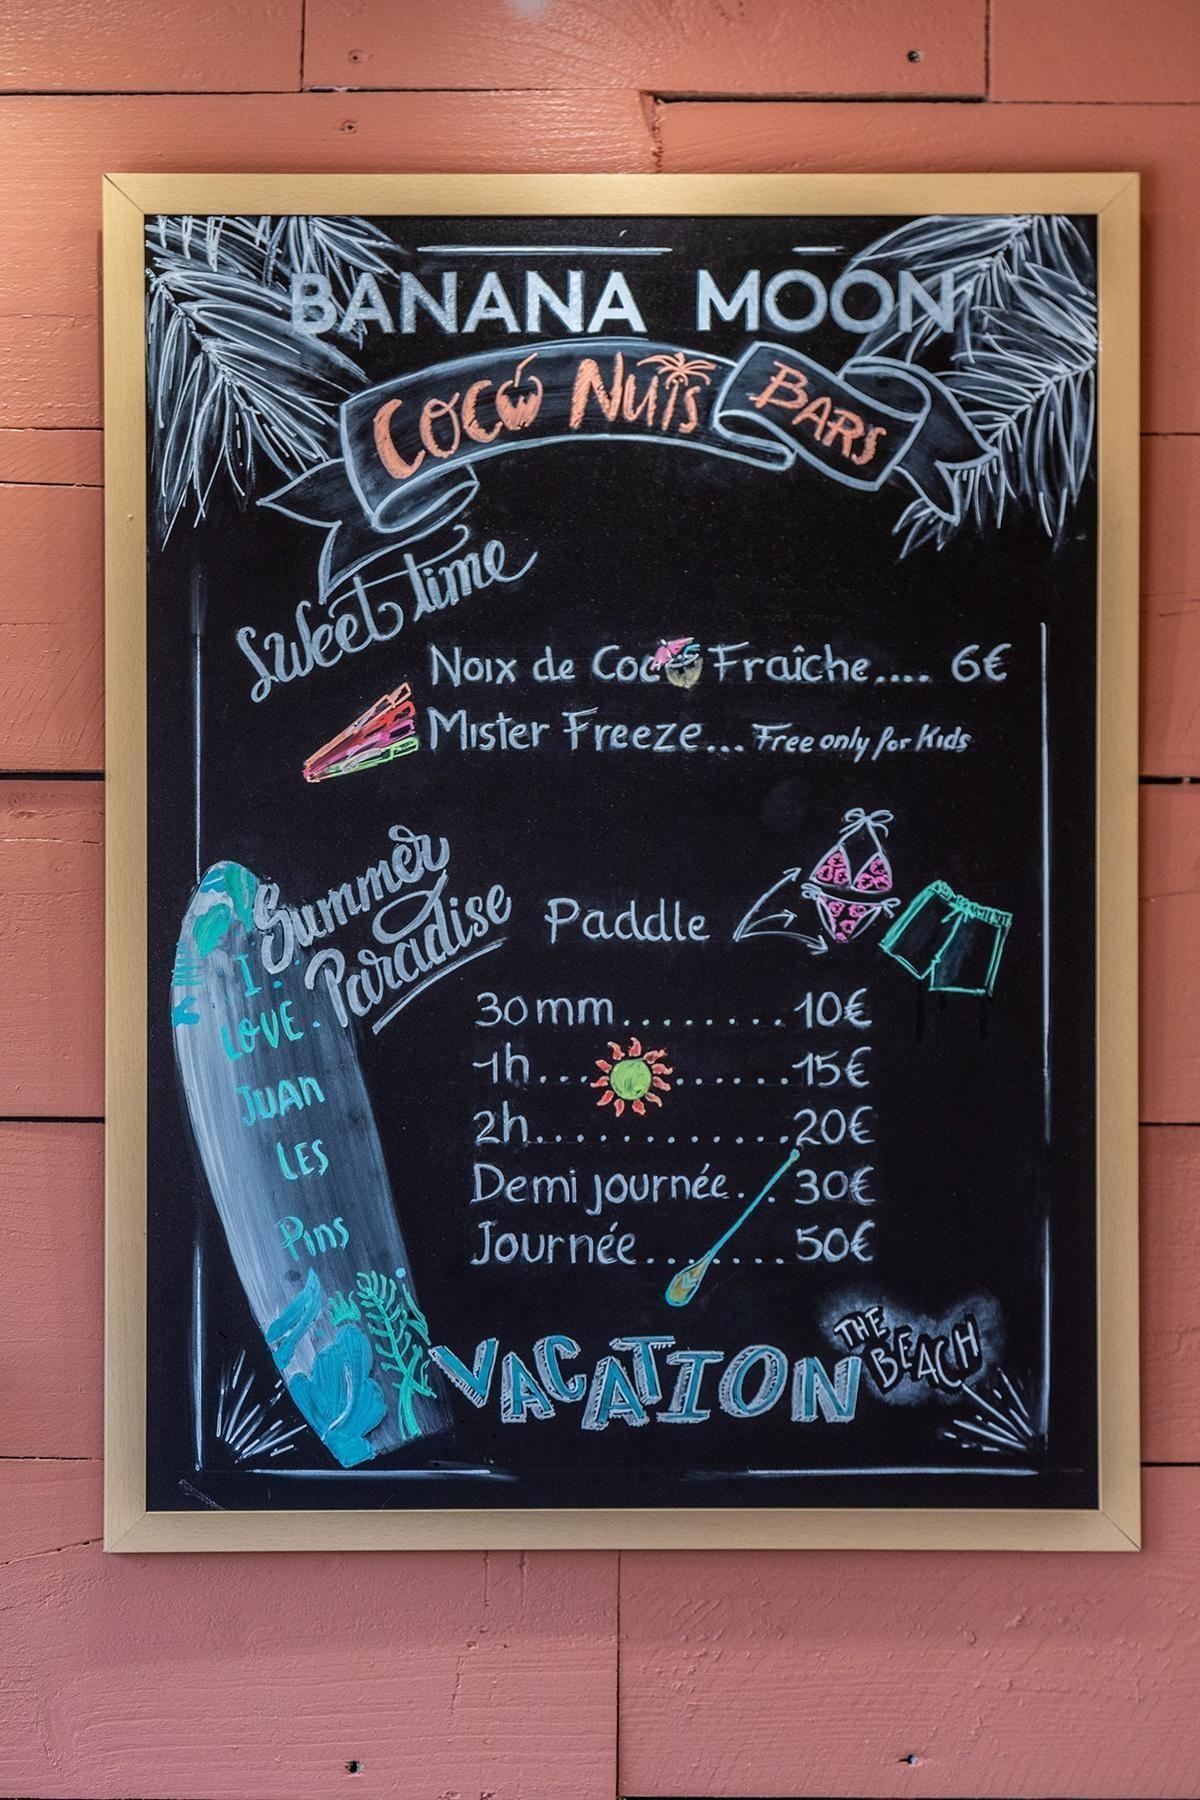 BANANA MOON
COCO NUTS BARS
Sweet time
Noix de Coco Fraîche.... 6€
Mister Freeze... Free only for Kids
Summer
Paradise
Paddle
30 mm........10€
1h............15€
2h.............20€
Demi journée...30€
Journée........50€
I
LOVE
JUAN
LES
Pins
VACATION
THE
BEACH